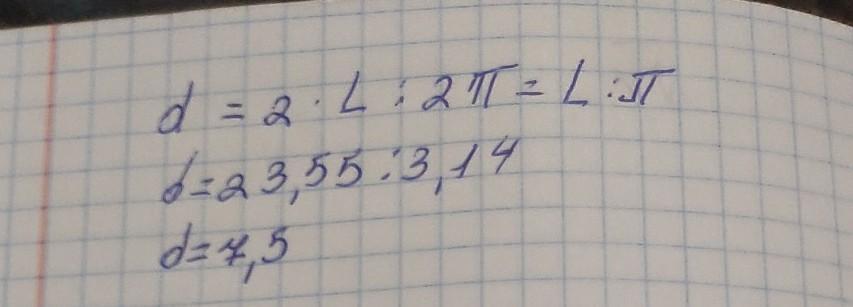 d = 2 · L : 2π = L : π
d = 23,55 : 3,14
d = 7,5